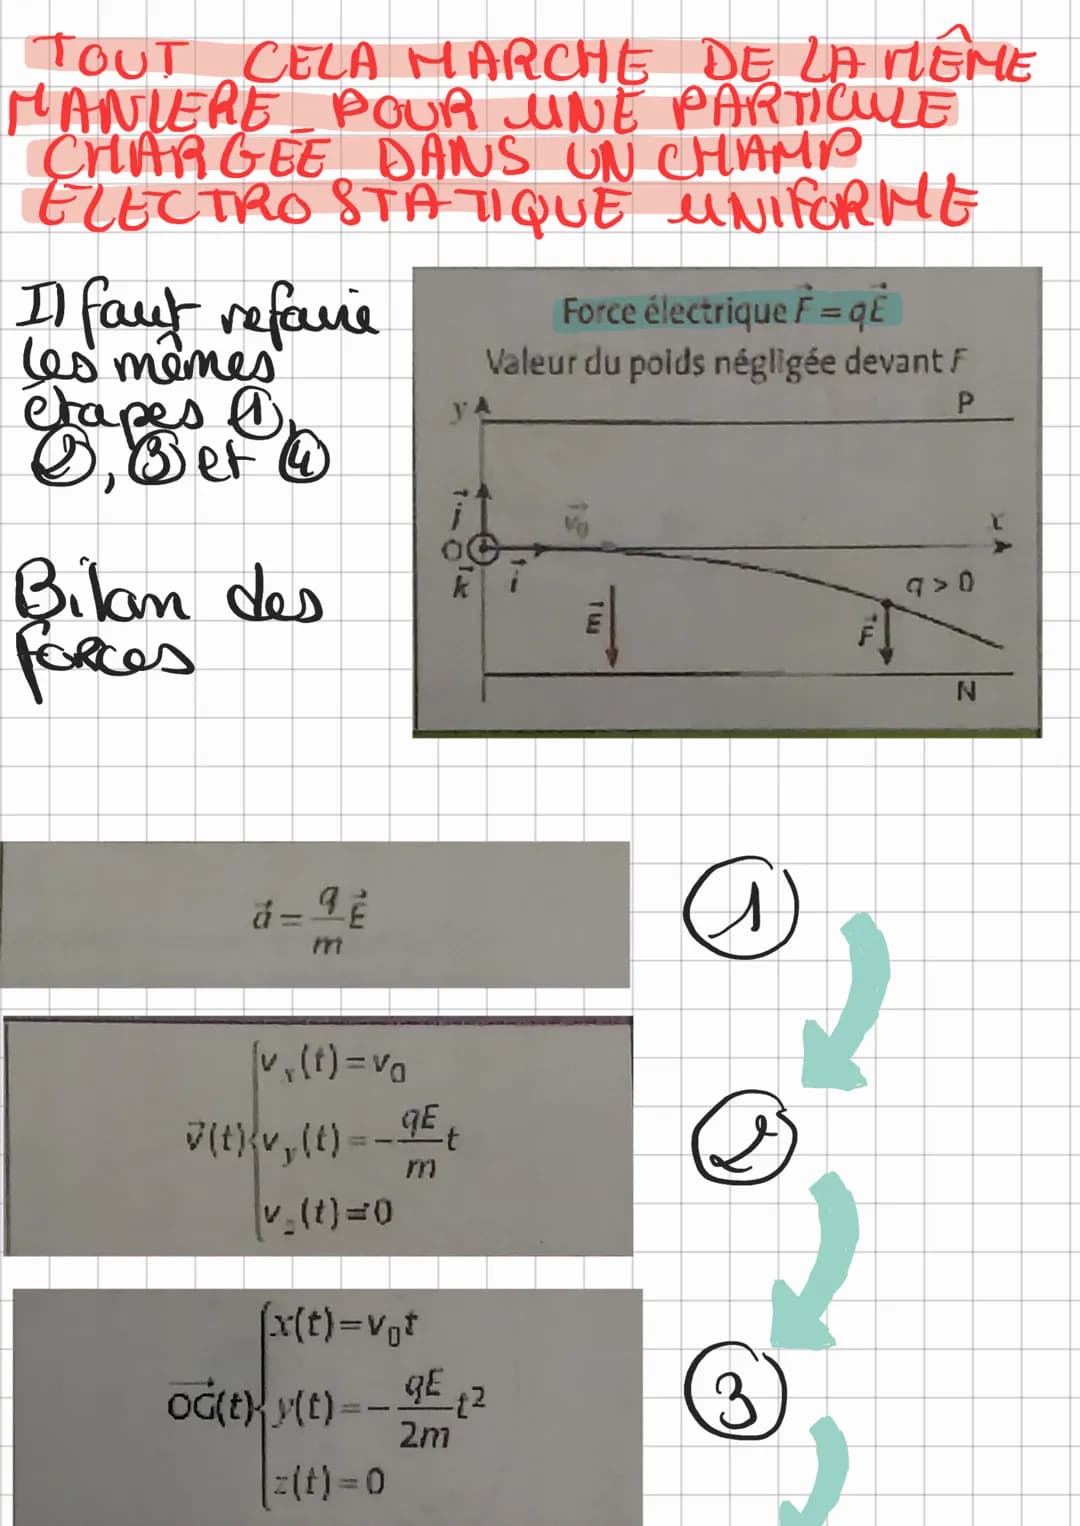 TOUT CELA MARCHE DE LA MÊME
MANIERE POUR UNE PARTICULE
CHARGÉE DANS UN CHAMP
ELECTROSTATIQUE UNIFORME
Il faut refaire
les mêmes
étapes ①,
②, ③ et ④
Bilan des
forces
Force électrique F⃗ = qE⃗
Valeur du poids négligée devant F
y
P
j⃗
v⃗₀
x
O
k⃗
i⃗
E⃗
q > 0
F⃗
N
a⃗ = q/m E⃗
①
v⃗(t) { vₓ(t) = v₀
v_y(t) = - qE/m t
v_z(t) = 0
②
OG⃗(t) { x(t) = v₀t
y(t) = - qE/2m t²
z(t) = 0
③